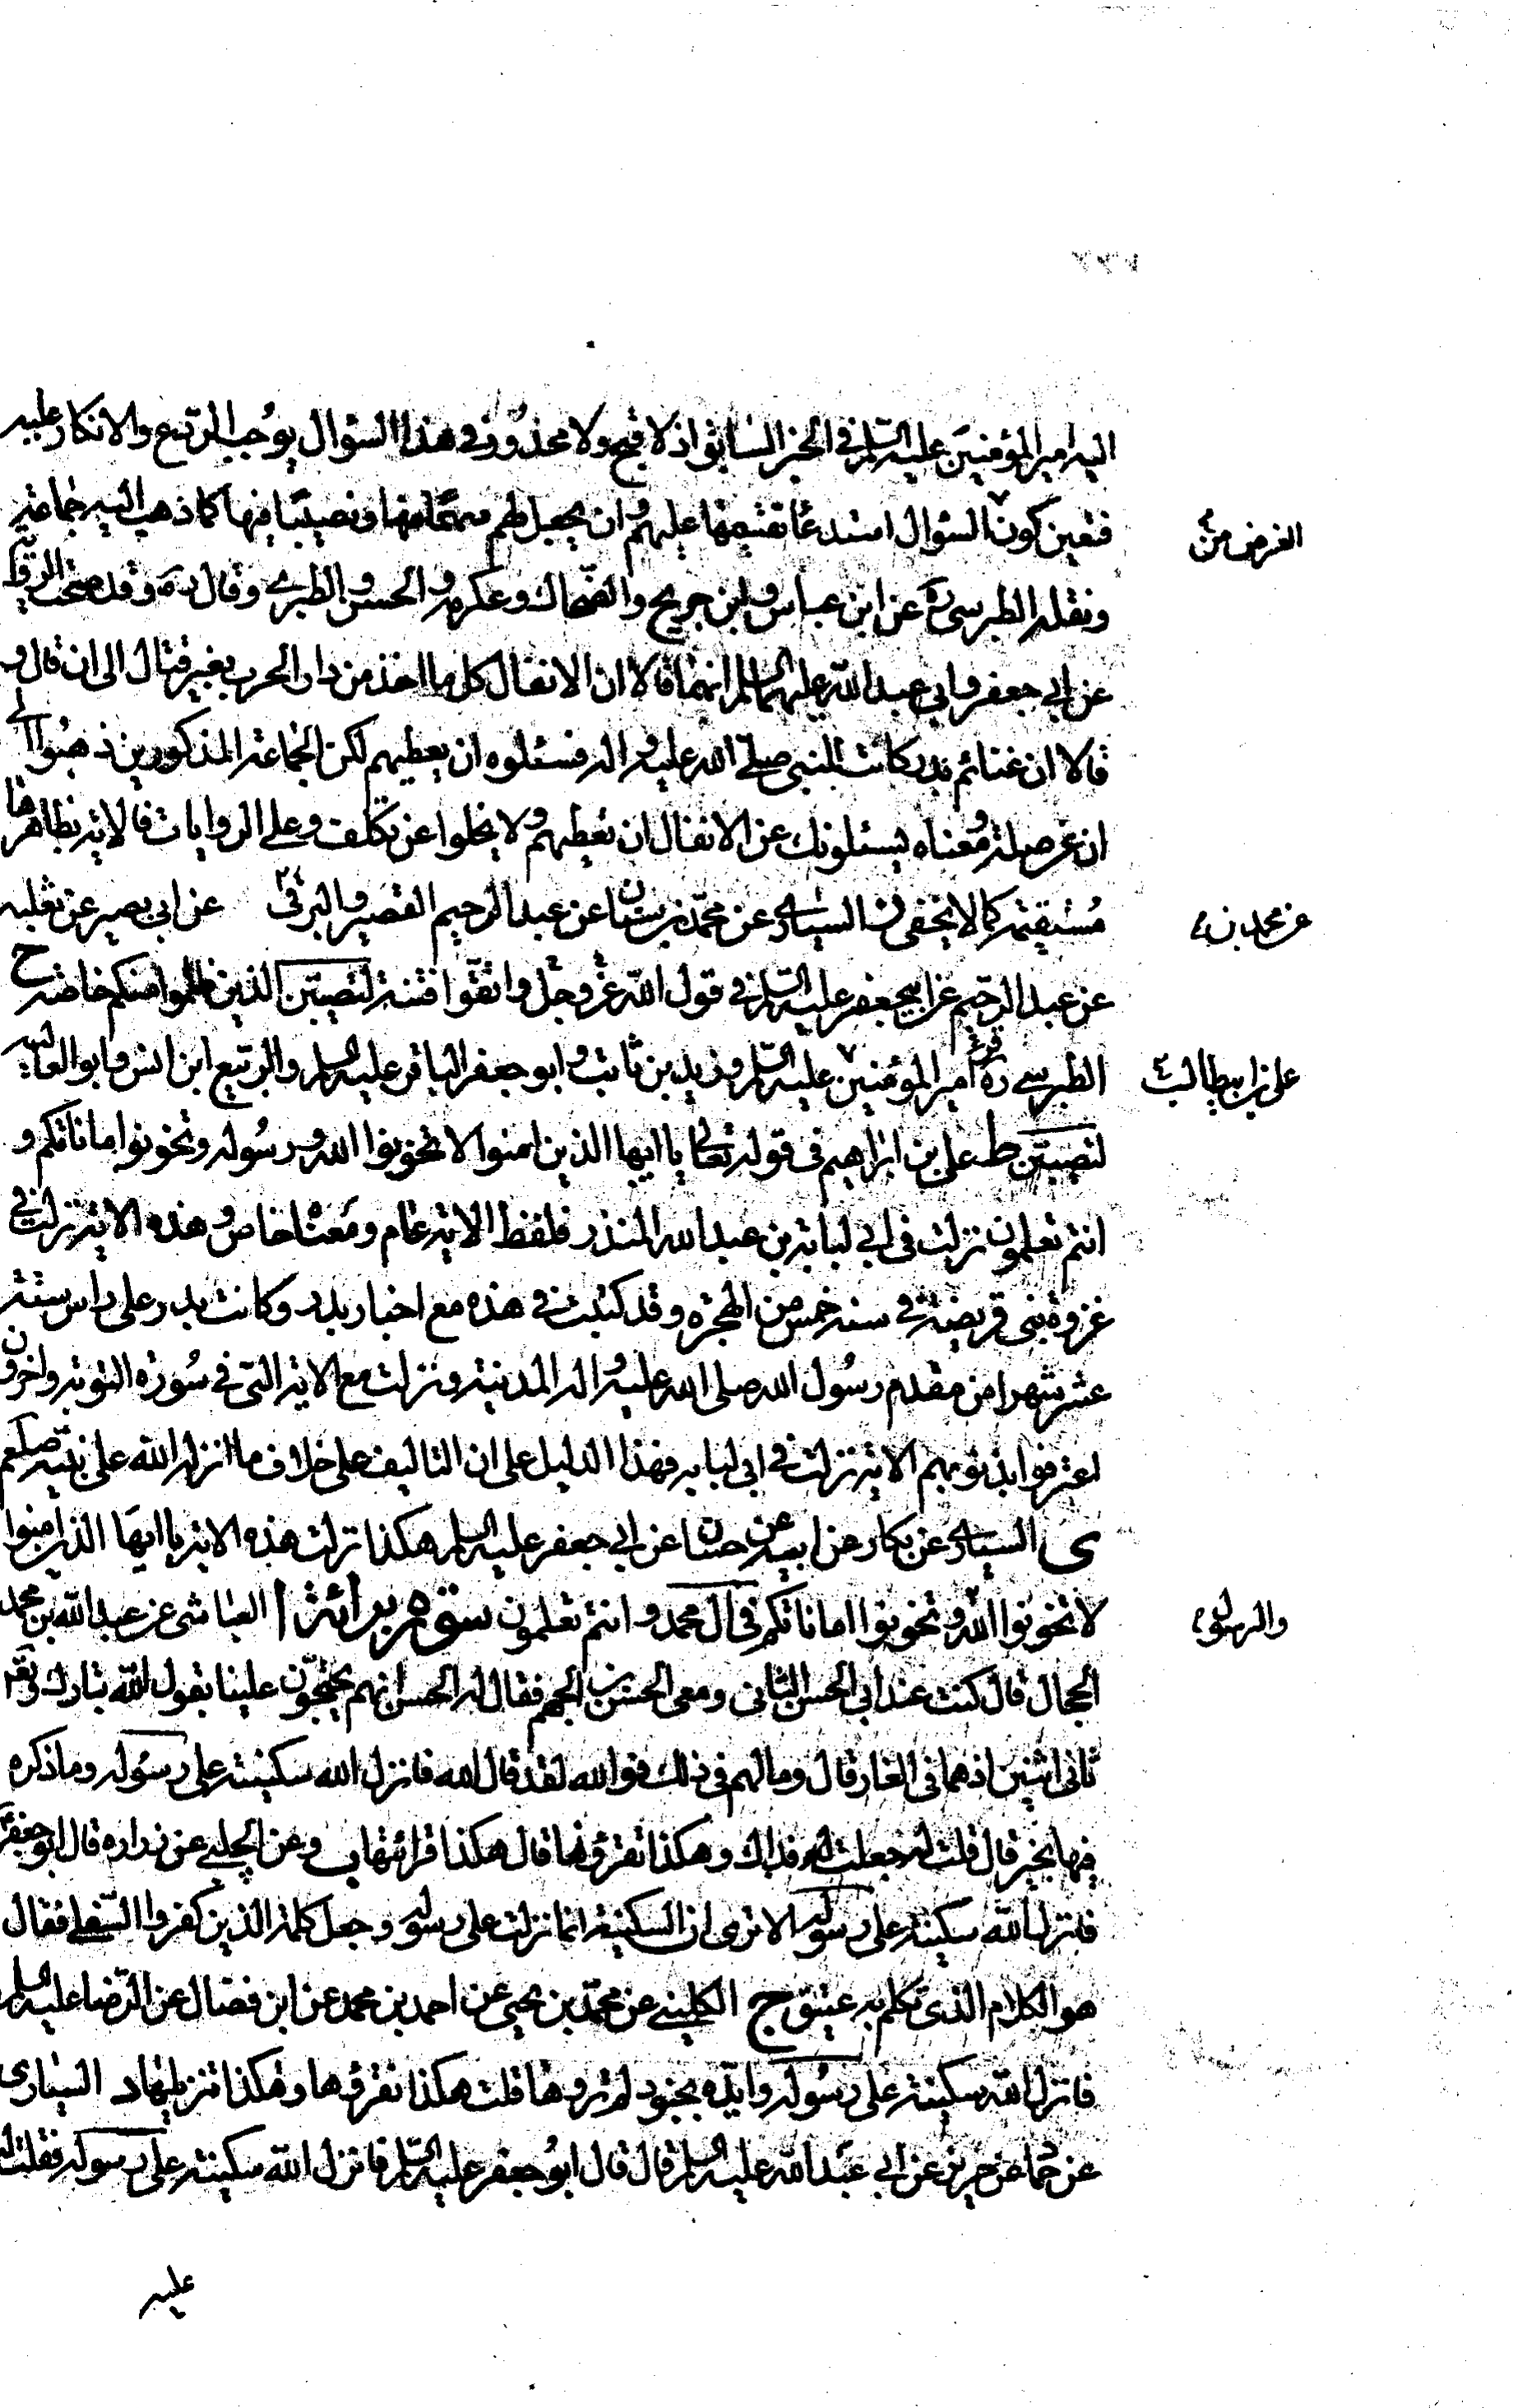 اليه امير المؤمنين عليه السلم في الخبر السابق اذ لا قبح ولا محذور في هذا السؤال يوجب الردع والانكار عليه
فتعين كون السؤال استدعا تقسيمها عليهم وان يجعل لهم سهما منها ونصيبا فيها كما ذهب اليه جماعة
الغرض من
ونقله الطبرسي ره عن ابن عباس وابن جريج والضحاك وعكرمه والحسن والطبري وقال ره وقد صحت الرواية
عن ابي جعفر وابي عبد الله عليهما السلم انهما قالا ان الانفال كل ما اخذ من دار الحرب بغير قتال الى ان قال و
قالا ان غنائم بدر كانت للنبي صلى الله عليه واله فسئلوه ان يعطيهم لكن الجماعة المذكورين ذهبوا الى
ان عن صلة ومعناه يسئلونك الانفال ان تعطيهم ولا يخلوا عن تكلف وعلى الروايات فالاية بظاهرها
مستقيمة كما لا يخفى السياري عن محمد بن سنان عن عبد الرحيم القصير والبرقي عن ابي بصير عن ثعلبه
عن محمد بن
عن عبد الرحيم عن ابيجعفر عليه السلم في قول الله عز وجل واتقوا فتنة لتصيبن الذين ظلموا منكم خاصة ح
الطبرسي ره قرء امير المؤمنين عليه السلم وزيد بن ثابت وابو جعفر الباقر عليه السلم والربيع ابن انس وابو العاليه
علي بن ابيطالب
لتصيبن ط علي بن ابراهيم في قوله تعالى يا ايها الذين امنوا لا تخونوا الله ورسوله وتخونوا اماناتكم و
انتم تعلمون نزلت في ابي لبابة بن عبد الله المنذر فلفظ الاية عام ومعناها خاص وهذه الاية نزلت في
غزوة بني قريضة في سنه خمس من الهجره وقد كتبت في هذه مع اخبار بدر وكانت بدر على راس ستة
عشر شهرا من مقدم رسول الله صلى الله عليه واله المدينة ونزلت مع الاية التي في سورة التوبة واخرون
اعترفوا بذنوبهم الاية نزلت في ابي لبابه فهذا الدليل على ان التاليف على خلاف ما انزله الله على نبيه صلعم
ى السياري عن بكار عن ابيه عن حسان عن ابي جعفر عليه السلم هكذا نزلت هذه الاية يا ايها الذين امنوا
لا تخونوا الله وتخونوا اماناتكم في ال محمد وانتم تعلمون سورة برائة ا العياشي عن عبد الله بن محمد
والرسول
الحجال قال كنت عند ابي الحسن الثاني ومعي الحسن بن الجهم فقال له الحسن انهم يحتجون علينا بقول الله تبارك وتعالى
ثاني اثنين اذ هما في الغار قال وما لهم في ذلك فوالله لقد قال الله فانزل الله سكينته على رسوله وما ذكره
فيها بخير قال قلت له جعلت فداك وهكذا تقرؤنها قال هكذا قرائتها ب وعن الحلبي عن زراره قال ابو جعفر
فانزل الله سكينته على رسوله الا ترى ان السكينة انما نزلت على رسوله وجعل كلمة الذين كفروا السفلى فقال
هو الكلام الذي تكلم به عتيق ج الكليني عن محمد بن يحيى عن احمد بن محمد عن ابن فضال عن الرضا عليه السلم
فانزل الله سكينته على رسوله وايده بجنود لم تروها قلت هكذا تقرؤها وهكذا تنزيلها د السياري
عن حماد عن حريز عن ابي عبد الله عليه السلم قال قال ابو جعفر عليه السلم فانزل الله سكينته على رسوله فقلت له
عليه